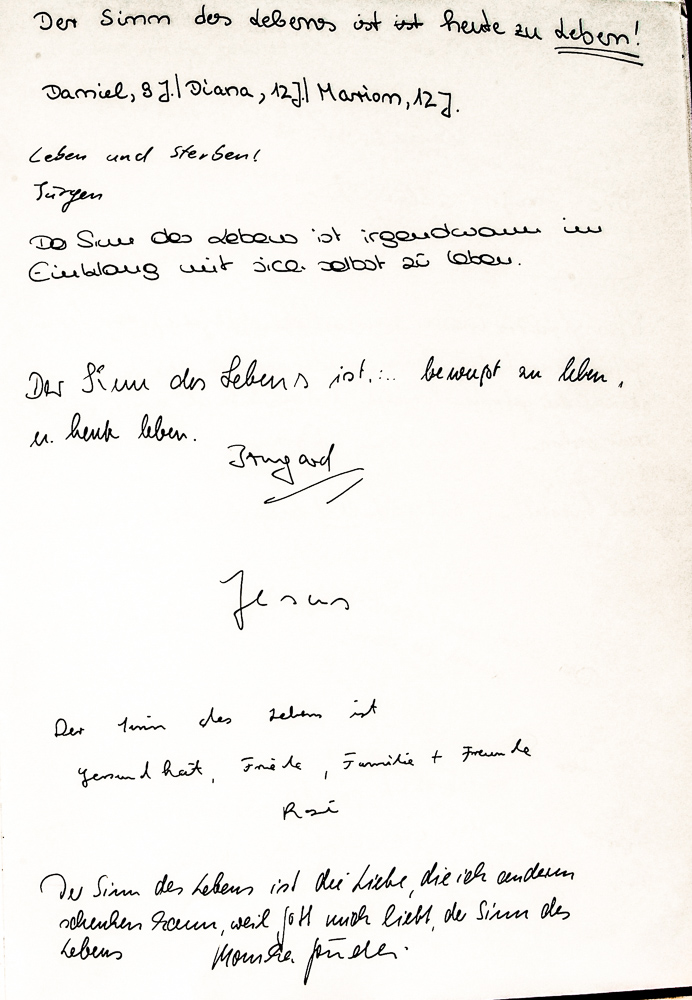 Der Sinn des Lebens ist ist heute zu Leben!
Daniel, 9 J.| Diana, 12J.| Marion, 12 J.
Leben und sterben!
Jürgen
De Sinn des Lebens ist irgendwann im
Einklang mit sich selbst zu leben.
Der Sinn des Lebens ist.... bewußt zu leben,
u. heute leben.
Irmgard
Jesus
Der Sinn des Lebens ist
Gesundheit, Friede, Familie + Freunde
Rosi
Der Sinn des Lebens ist die Liebe, die ich anderen
schenken kann, weil Gott mich liebt, der Sinn des
Lebens Monika